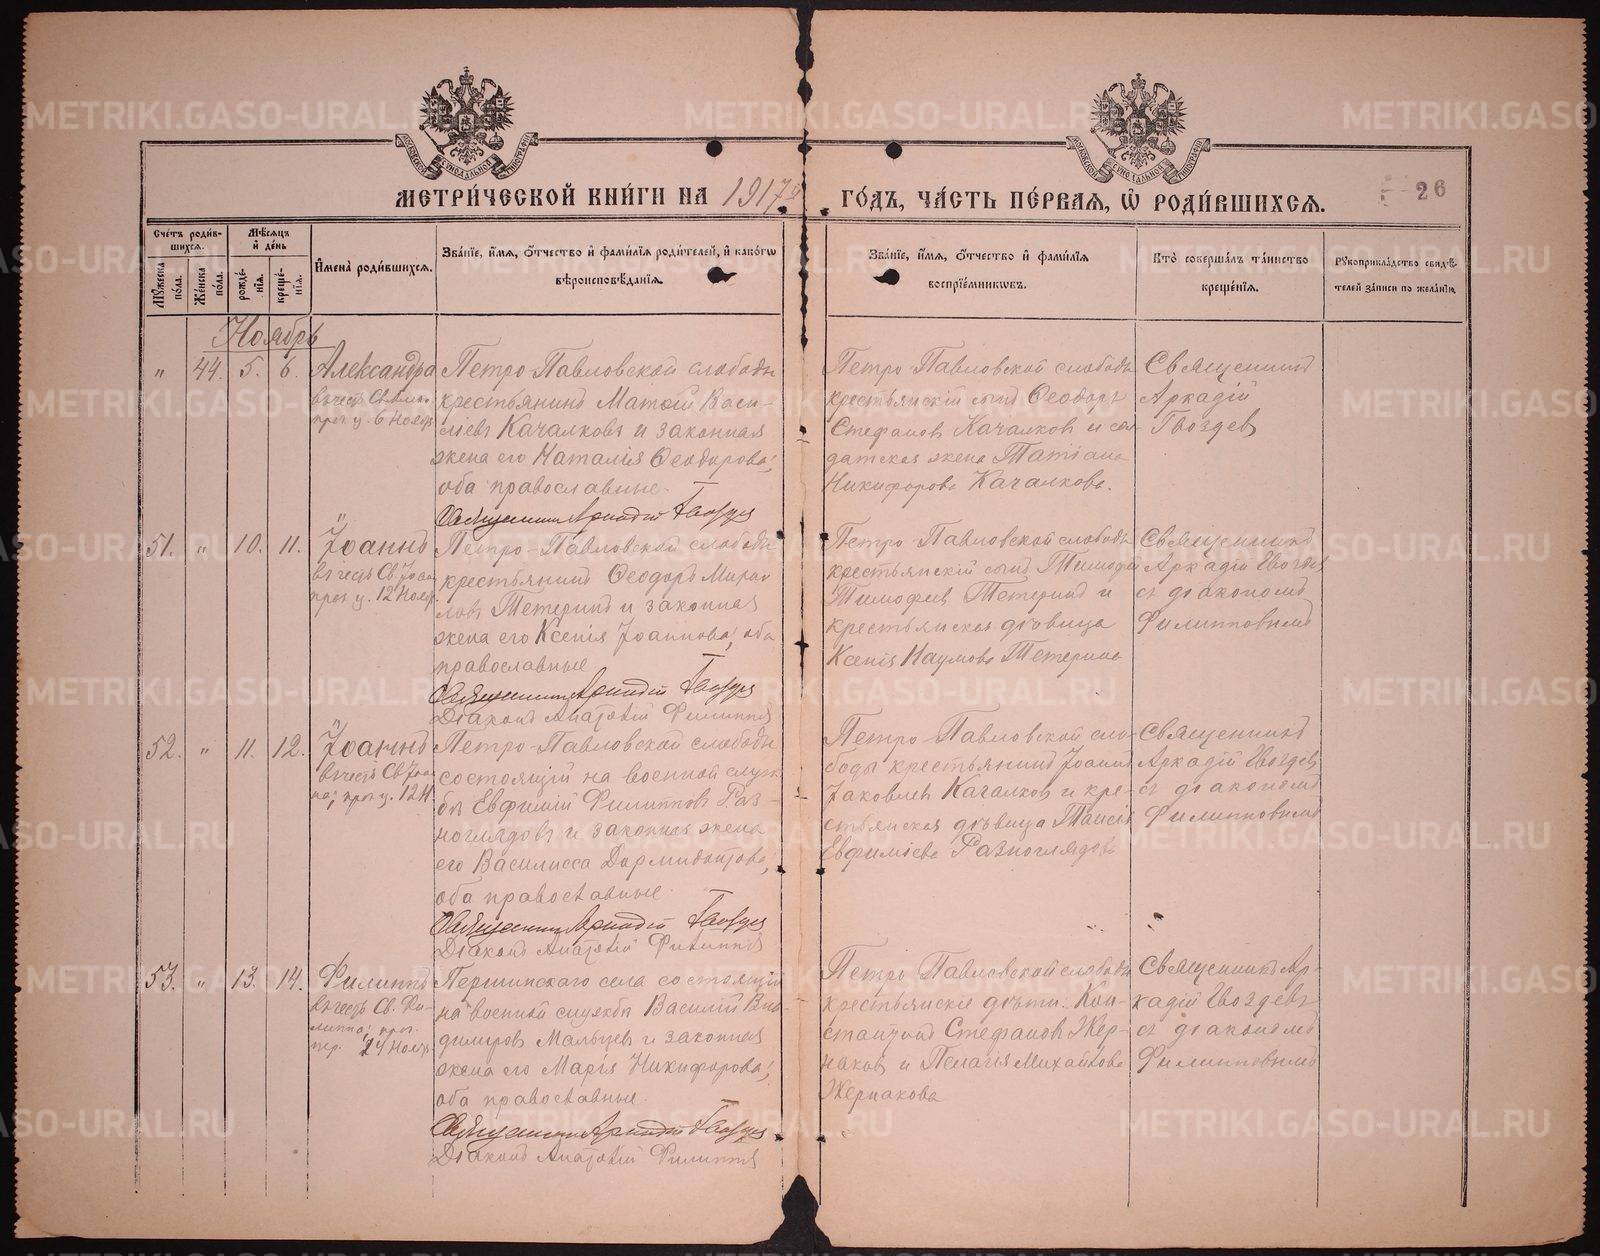 МЕТРИ́ЧЕСКОЙ КНИ́ГИ НА 1917 й
ГО́ДЪ, ЧА́СТЬ ПЕ́РВАЯ, Ѡ҆ РОДИ́ВШИХСЯ.
26
Сче́тъ роди́в-
шихся.
Мꙋ́жеска по́ла.
Же́нска по́ла.
Мѣ́сяцъ
и҆ де́нь
рожде́-
нїя.
креще́-
нїя.
И҆мена̀ роди́вшихся.
Зва́нїе, и҆́мя, ѻ҆́тчество и҆ фами́лїя роди́телей, и҆ како́гѡ
вѣроисповѣ́данїя.
Зва́нїе, и҆́мя, ѻ҆́тчество и҆ фами́лїя
воспрїе́мниковъ.
Кто̀ соверша́лъ та́инство
креще́нїя.
Рꙋкоприкла́дство свидѣ́-
телей за́писи по жела́нїю.
Ноябрь
" 44. 5. 6. Александра
въ честь Св.
6 Ноября
Петро-Павловской слободы
крестьянинъ Матѳій Васи-
льевъ Качалковъ и законная
жена его Наталія Ѳеодорова,
оба православные.
Священникъ Аркадій Гвоздев
Петро-Павловской слободы
крестьянскій сынъ Ѳеодоръ
Стефанов Качалков и сол-
датская жена Татіана
Никифорова Качалкова.
Священникъ
Аркадій
Гвоздев
51. " 10. 11. Іоаннъ
въ честь Св. Іоан.
праз. ц. 12 Нояб.
Петро-Павловской слободы
крестьянинъ Ѳеодоръ Михаи-
ловъ Тетеринъ и законная
жена его Ксенія Іоаннова, оба
православные.
Священникъ Аркадій Гвоздев
Діаконъ Анатолій Филиппов
Петро-Павловской слободы
крестьянскій сынъ Тимофей
Тимофеев Тетеринъ и
крестьянская дѣвица
Ксенія Наумова Тетерина
Священникъ
Аркадій Гвоздев
съ діакономъ
Филипповымъ
52. " 11. 12. Іоаннъ
въ честь Св. Іоан-
на, праз. ц. 12 Н.
Петро-Павловской слободы
состоящій на военной служ-
бѣ Евфимій Филиппов Раз-
ноглядовъ и законная жена
его Василисса Дормидонтова,
оба православные.
Священникъ Аркадій Гвоздев
Діаконъ Анатолій Филиппов
Петро-Павловской сло-
боды крестьянинъ Іоаннъ
Іаковлев Качалков и кре-
стьянская дѣвица Таисія
Евфиміева Разноглядова
Священникъ
Аркадій Гвоздев
съ діакономъ
Филипповымъ
53. " 13. 14. Филиппъ
въ честь Св. Фи-
липпа, праз.
Нояб.
Першинскаго села состоящій
на военной службѣ Василій Вла-
димиров Мальцев и законная
жена его Марія Никифорова,
оба православные.
Священникъ Аркадій Гвоздев
Діаконъ Анатолій Филиппов
Петро-Павловской слободы
крестьянскіе дѣти: Кон-
стантинъ Стефанов Жер-
наков и Пелагія Михайлова
Жернакова
Священникъ Ар-
кадій Гвоздевъ
съ діакономъ
Филипповымъ
METRIKI.GASO-URAL.RU